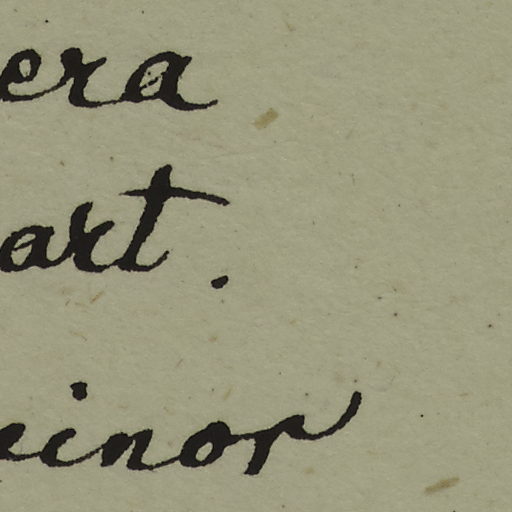 era
art.
einor